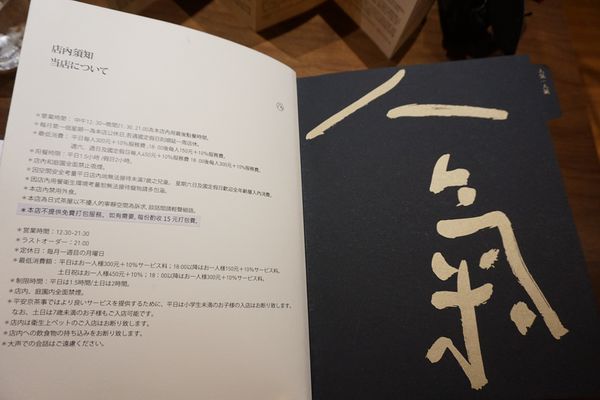 店內須知
当店について
＊營業時間： 中午12：30~晚間21：30, 21:00為本店內用最後點餐時間。
＊每月第一個星期一為本店公休日,若適國定假日則順延一周店休。
＊最低消費： 平日每人300元＋10%服務費，18:00後每人150元＋10%服務費。
週六、週日及國定假日每人450元＋10%服務費 18:00後每人300元＋10%服務費。
＊用餐時間：平日1.5小時/假日2小時。
＊店內和庭園全面禁止吸煙。
＊因空間安全考量平日店內尚無法接待未滿7歲之兒童。 星期六日及國定假日歡迎全年齡層入內消費。
＊因店內用餐衛生環境考量恕無法接待寵物請多包涵。
＊本店內禁用外食。
＊本店為日式茶屋以不擾人的寧靜空間為訴求, 談話間請輕聲細語。
＊本店不提供免費打包服務。如有需要, 每份酌收 15 元打包費。
＊営業時間：12:30-21:30
＊ラストオーダー：21:00
＊定休日：毎月一週目の月曜日
＊最低消費額：平日はお一人様300元＋10%サービス料；18:00以降はお一人様150元＋10%サービス料。
土日祝はお一人様450元＋10%；18：00以降はお一人様300元＋10%サービス料。
＊制限時間：平日は1.5時間/土日は2時間。
＊店内、庭園内全面禁煙。
＊平安京茶事ではより良いサービスを提供するために、平日は小学生未満のお子様の入店はお断り致します。
なお、土日は7歳未満のお子様もご入店可能です。
＊店内は衛生上ペットのご入店はお断り致します。
＊店内への飲食物の持ち込みをお断り致します。
＊大声での会話はご遠慮ください。